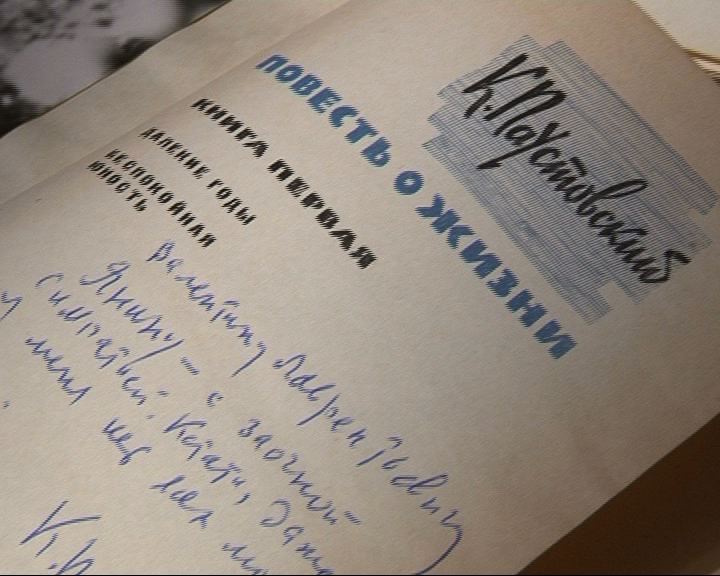 К. Паустовский
ПОВЕСТЬ О ЖИЗНИ
КНИГА ПЕРВАЯ
ДАЛЕКИЕ ГОДЫ
БЕСПОКОЙНАЯ
ЮНОСТЬ
Валентину Лаврентьевичу
Янину — с заочной
симпатией. Кстати, даже
у меня нет
К. П